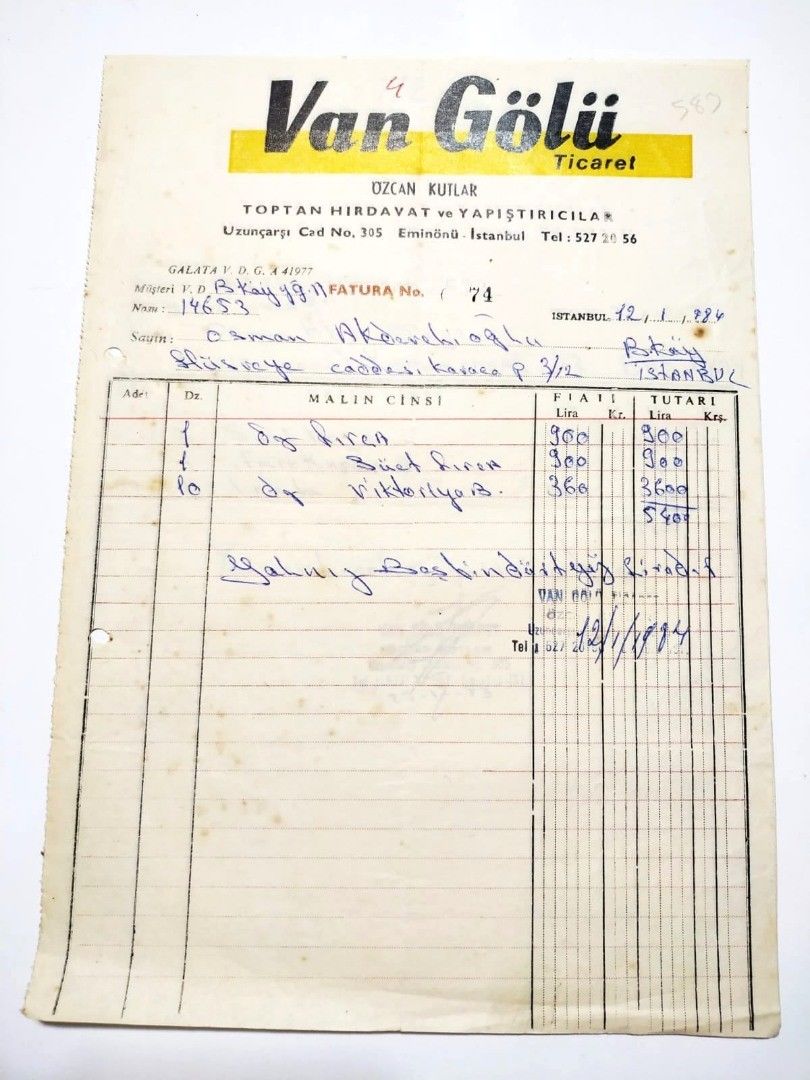 4
587
Van Gölü
Ticaret
ÖZCAN KUTLAR
TOPTAN HIRDAVAT ve YAPIŞTIRICILAR
Uzunçarşı Cad No. 305 Eminönü - İstanbul Tel : 527 20 56
GALATA V. D. G. A 41977
Müşteri V. D. B.Köy FATURA No. 74
Nosu : 14653
İSTANBUL 12 / 1 / 984
Sayın : Osman
B.Köy
caddesi Karaca P 3/12 İSTANBUL
Adet Dz. MALIN CİNSİ FİATI TUTARI
Lira Kr. Lira Krş.
1 900 900
1 900 900
10 Viktorya B. 360 3600
5400
Yalnız Beşbindörtyüz Liradır
VAN
12/1/1984
Tel : 527 20